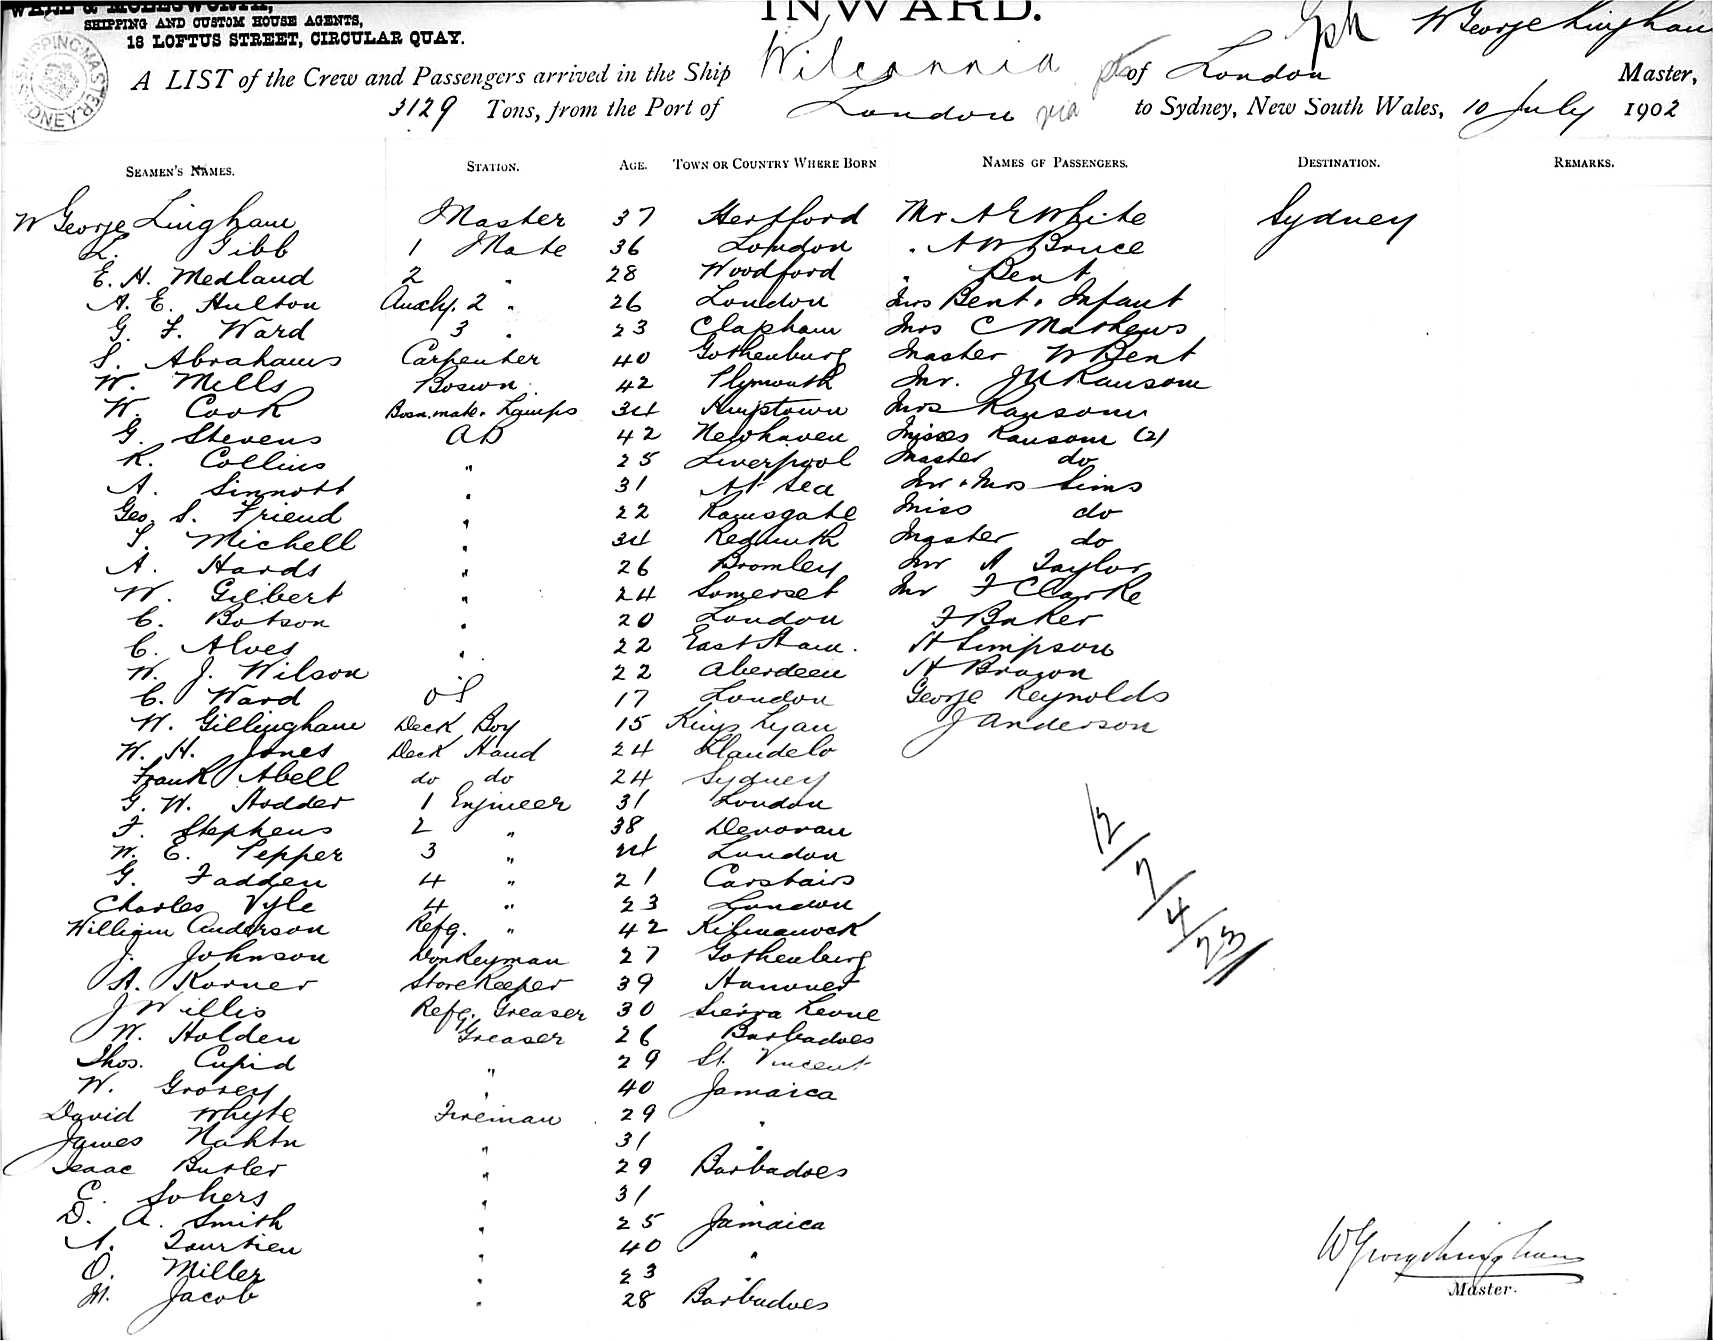 WALL & MOLESWORTH,
SHIPPING AND CUSTOM HOUSE AGENTS,
18 LOFTUS STREET, CIRCULAR QUAY.
INWARD.
W George Lingham
SHIPPING MASTER SYDNEY
A LIST of the Crew and Passengers arrived in the Ship Wilcannia of London Master,
3129 Tons, from the Port of London via to Sydney, New South Wales, 10 July 1902
SEAMEN'S NAMES. STATION. AGE. TOWN OR COUNTRY WHERE BORN NAMES OF PASSENGERS. DESTINATION. REMARKS.
W George Lingham Master 37 Hertford Mr A E White Sydney
L. Gibb 1 Mate 36 London " A W Bruce
E. H. Medland 2 " 28 Woodford " Bent
A. E. Hulton Auxly. 2 " 26 London Mrs Bent & Infant
G. F. Ward 3 " 23 Clapham Mrs C Mathews
S. Abrahams Carpenter 40 Gothenburg Master W Bent
W. Mills Boswn 42 Plymouth Mr. J U Ransom
W. Cook Bosn. mate & Lamps 34 Kempstown Mrs Ransom
G. Stevens AB 42 Newhaven Misses Ransom (2)
R. Collins " 25 Liverpool Master do
A. Sinnott " 31 At Sea Mr & Mrs Sims
Geo. S. Friend " 22 Ramsgate Miss do
S. Michell " 34 Redruth Master do
A. Hards " 26 Bromley Mr A Taylor
W. Gilbert " 24 Somerset Mr F Clarke
C. Botson " 20 London F Baker
C. Alves " 22 East Ham. H Simpson
W. J. Wilson " 22 Aberdeen H Brown
C. Ward OS 17 London George Reynolds
W. Gillingham Deck Boy 15 Kings Lynn J Anderson
W. H. Jones Deck Hand 24 Llandelo
Frank Abell do do 24 Sydney
G. W. Hodder 1 Engineer 31 London
F. Stephens 2 " 38 Devoran
W. E. Pepper 3 " 24 London
G. Fadden 4 " 21 Carstairs
Charles Vyle 4 " 23 London
William Anderson Refg. " 42 Kilmanock
J. Johnson Donkeyman 27 Gothenburg
A. Korner Storekeeper 39 Hanover
J Willis Refg. Greaser 30 Sierra Leone
W. Holden Greaser 26 Barbadoes
Thos. Cupid " 29 St. Vincent
W. Grosey " 40 Jamaica
David Whyte Fireman 29 "
James " 31 "
Isaac Butler " 29 Barbadoes
C. Sohers " 31 "
D. A. Smith " 25 Jamaica
A. " 40 "
O. Miller " 23 "
M. Jacob " 28 Barbadoes
12/7/4/23
W George Lingham
Master.